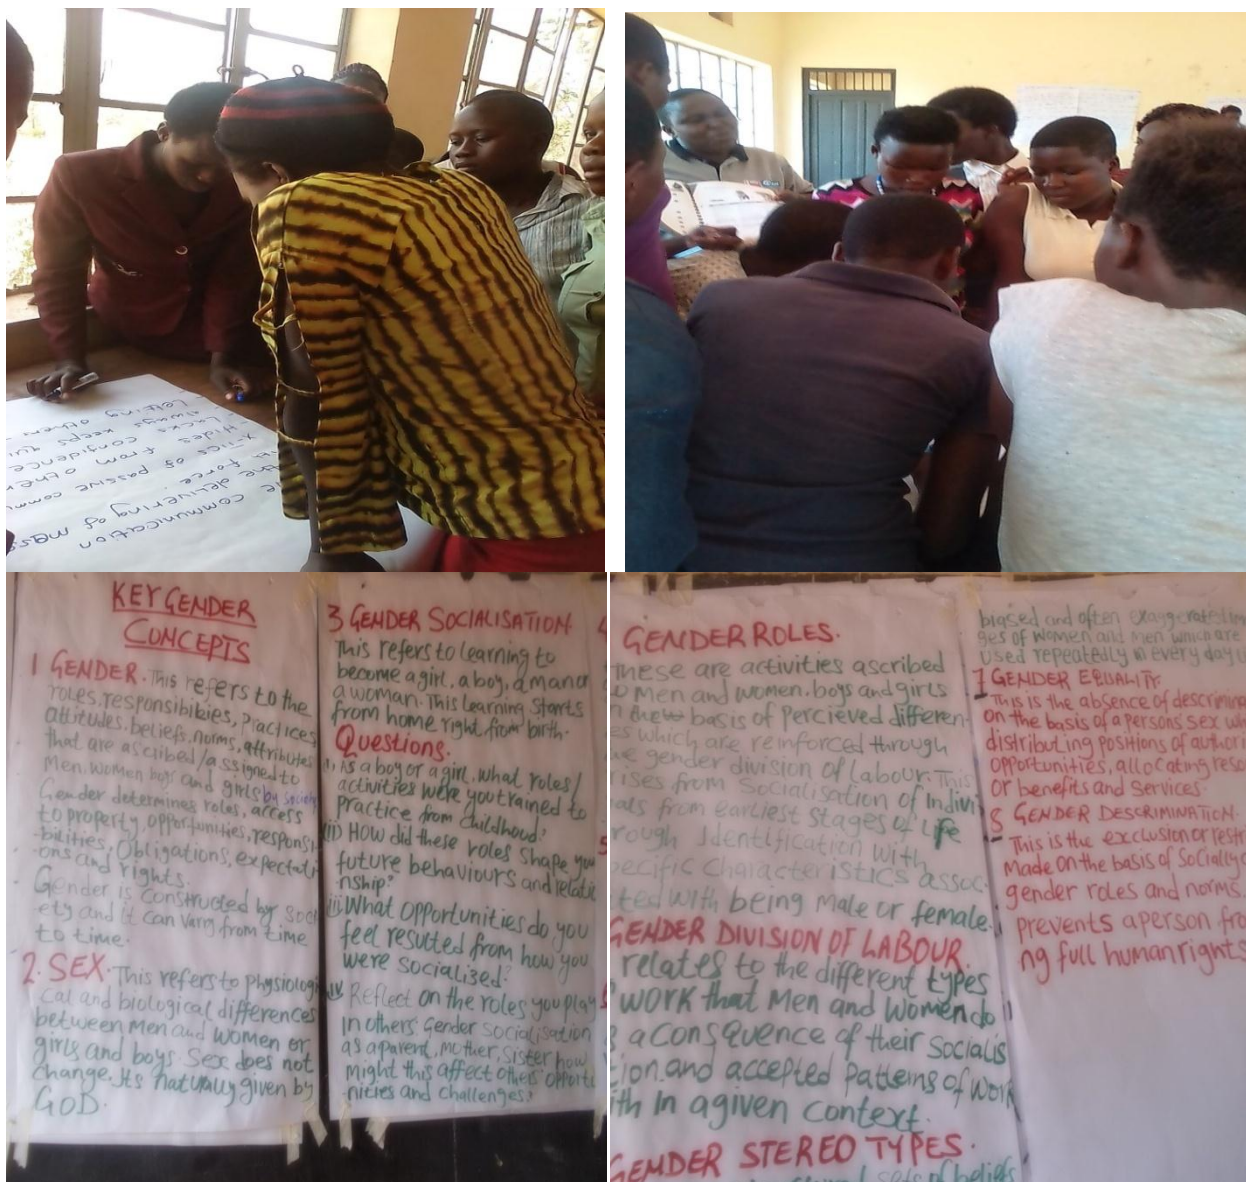 others
Letting
always keeps qui
Lacks confidence
Hides from othe
x-tics of passive commu
force.
the delivering of mass
communication
KEY GENDER
CONCEPTS
1 GENDER. This refers to the
roles, responsibilities, Practices
attitudes, beliefs, norms, attributes
that are ascribed/assigned to
Men, women boys and girls by society
Gender determines roles, access
to property, opportunities, responsi
-bilities, Obligations, expectati
-ons and rights.
Gender is constructed by soci
ety and it can vary from time
to time.
2. SEX. This refers to physiologi
cal and biological differences
between Men and women or
girls and boys. Sex does not
change. Its naturally given by
GOD.
3 GENDER SOCIALISATION
This refers to learning to
become a girl, a boy, a man or
a woman. This learning starts
from home right from birth.
Questions.
(i) As a boy or a girl, what roles/
activities were you trained to
practice from childhood?
(ii) HOW did these roles shape you
future behaviours and relatio
-nship?
iii What opportunities do you
feel resulted from how you
were socialised?
iv Reflect on the roles you play
in others Gender socialisation
as a parent, mother, sister how
might this affect others' opportu
-nities and challenges?
GENDER ROLES.
These are activities ascribed
to men and women, boys and girls
basis of percieved differen-
es which are reinforced through
gender division of labour. This
rises from Socialisation of Indivi
als from earliest stages of life
rough Identification with
pecific characteristics assoc.
ted with being male or female.
GENDER DIVISION OF LABOUR.
relates to the different types
work that Men and Women do
a consquence of their socialis
ion and accepted patterns of work
ith in a given context.
GENDER STEREO TYPES.
sets of beliefs
biased and often exaggerated im
ges of women and men which are
used repeatedly in every day
7 GENDER EQUALITY
This is the absence of descrimina
on the basis of a persons sex
distributing positions of authori
opportunities, allocating reso
Or benefits and services.
8 GENDER DESCRIMINATION.
This is the exclusion or restri
Made on the basis of Socially c
gender roles and norms.
prevents a person fro
ng full human rights